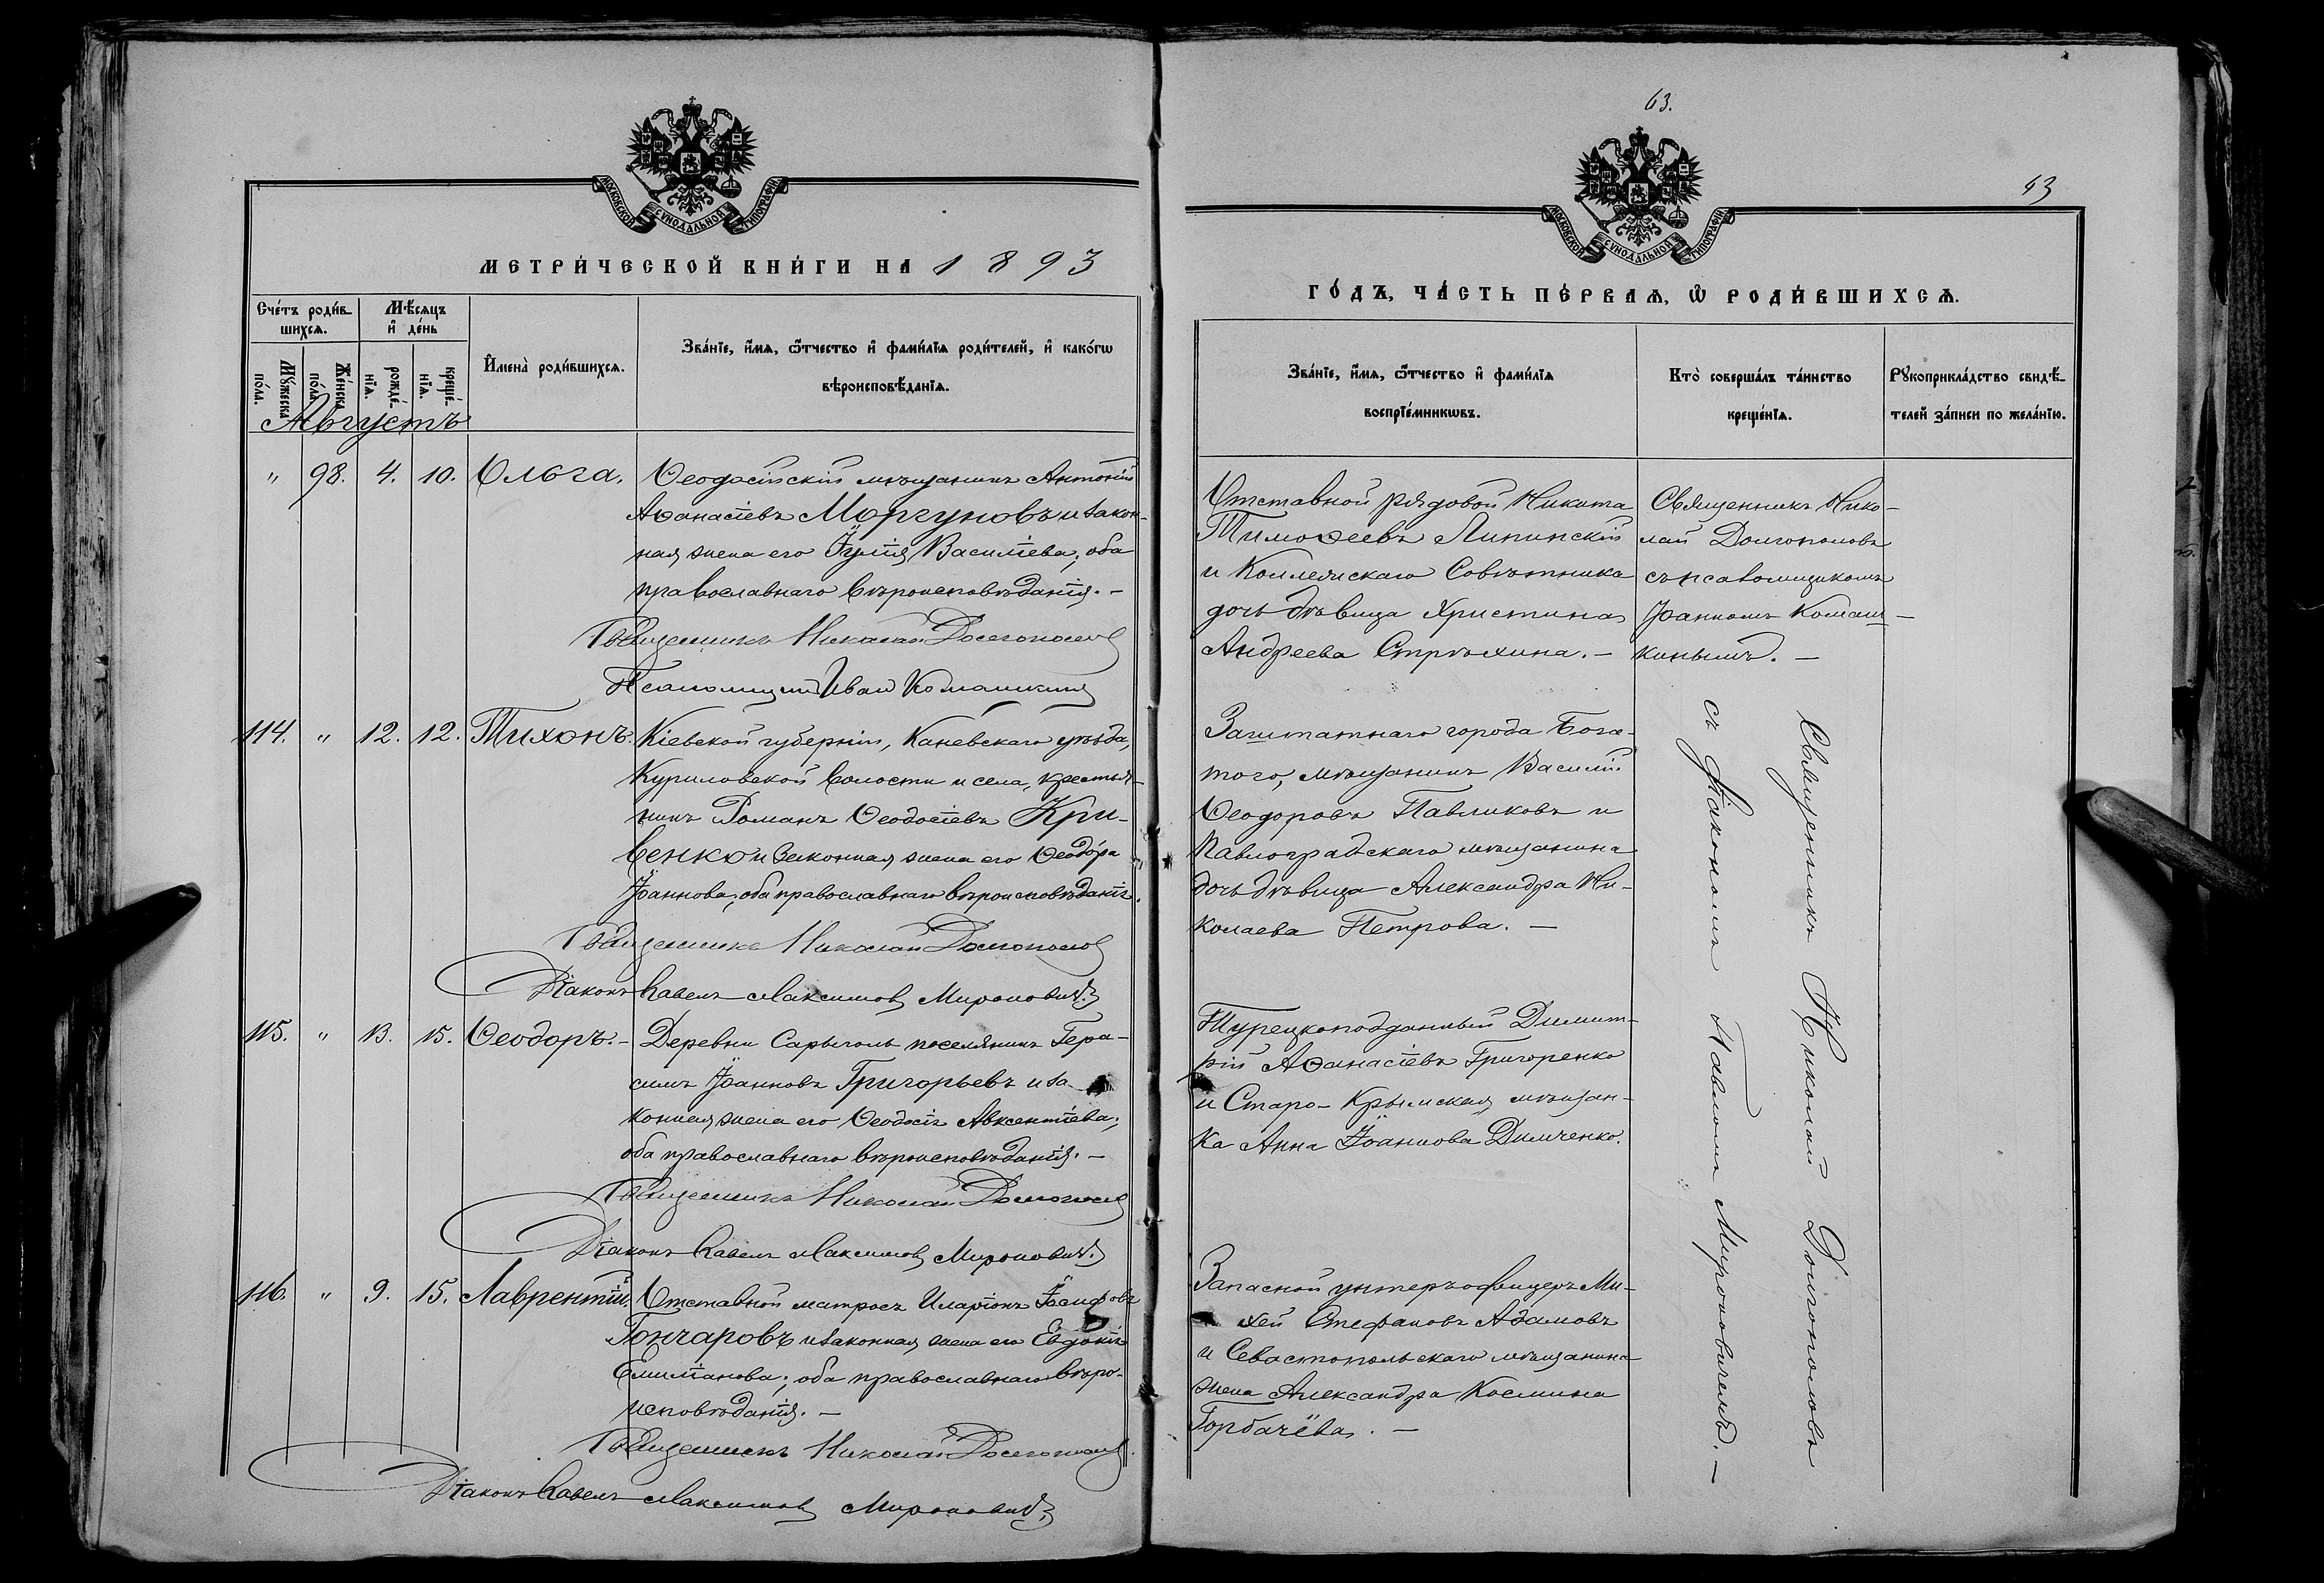 МОСКОВСКОЙ СѴНОДАЛЬНОЙ ТИПОГРАФІИ.
МЕТРИ́ЧЕСКОЙ КНИ́ГИ НА 1893
Сче́тъ роди́в-
шихсѧ.
Мѣ́сѧцъ
и҆ де́нь
Мꙋ́жеска
по́ла.
Же́нска
по́ла.
рожде́-
нїѧ.
креще́-
нїѧ.
И҆мена̀ роди́вшихсѧ.
Зва́нїе, и҆́мѧ, ѻ҆́тчество и҆ фами́лїѧ роди́телей, и҆ како́гѡ
вѣроисповѣ́данїѧ.
Августъ
" 98. 4. 10. Ольга. Ѳеодосійскій мѣщанинъ Антоній
Аѳанасіевъ Моргуновъ и закон-
ная жена его Іулія Василіева; оба
православнаго вѣроисповѣданія. -
Священникъ Николай Долгополов
Псаломщик Иван Комашкин
114. " 12. 12. Тихонъ. Кіевской губерніи, Каневскаго уѣзда,
Куриловской волости и села, крестья-
нинъ Романъ Ѳеодосіевъ Кри-
венко и законная жена его Ѳеодора
Іоаннова; оба православнаго вѣроисповѣданія.
Священникъ Николай Долгополов
Діаконъ Павелъ Максимов Миронович
115. " 13. 15. Ѳеодоръ. - Деревни Сарыголь поселянинъ Гера-
симъ Іоанновъ Григорьевъ и за-
конная жена его Ѳеодосія Авксентіева;
оба православнаго вѣроисповѣданія. -
Священникъ Николай Долгополов
Діаконъ Павелъ Максимов Миронович
116. " 9. 15. Лаврентій. Отставной матросъ Иларіонъ Іосифовъ
Гончаровъ и законная жена его Евдокія
Емиліанова; оба православнаго вѣро-
исповѣданія. -
Священникъ Николай Долгополов
Діаконъ Павелъ Максимов Миронович
63.
63
МОСКОВСКОЙ СѴНОДАЛЬНОЙ ТИПОГРАФІИ.
ГО́ДЪ, ЧА́СТЬ ПЕ́РВАѦ, Ѡ҆ РОДИ́ВШИХСѦ.
Зва́нїе, и҆́мѧ, ѻ҆́тчество и҆ фами́лїѧ
воспрїе́мникѡвъ.
Кто̀ соверша́лъ та́инство
креще́нїѧ.
Рꙋкоприкла́дство свидѣ́-
телей за́писи по жела́нїю.
Отставной рядовой Никита
Тимоѳеевъ Липинскій
и Коллежскаго Совѣтника
дочь дѣвица Христина
Андреева Стрѣхина. -
Священникъ Нико-
лай Долгополовъ
съ псаломщикомъ
Іоанномъ Комаш-
кинымъ. -
Заштатнаго города Бога-
того, мѣщанинъ Василій
Ѳеодоровъ Павликовъ и
Павлоградскаго мѣщанина
дочь дѣвица Александра Ни-
колаева Петрова. -
Турецкоподданный Димит-
рій Аѳанасіевъ Григоренко
и Старо-Крымская мѣщан-
ка Анна Іоаннова Димченко.
Запасной унтеръ-офицеръ Ми-
хей Стефановъ Адамовъ
и Севастопольскаго мѣщанина
жена Александра Космина
Горбачёва. -
Священникъ Николай Долгополовъ
съ діакономъ Павломъ Мироновичемъ. -